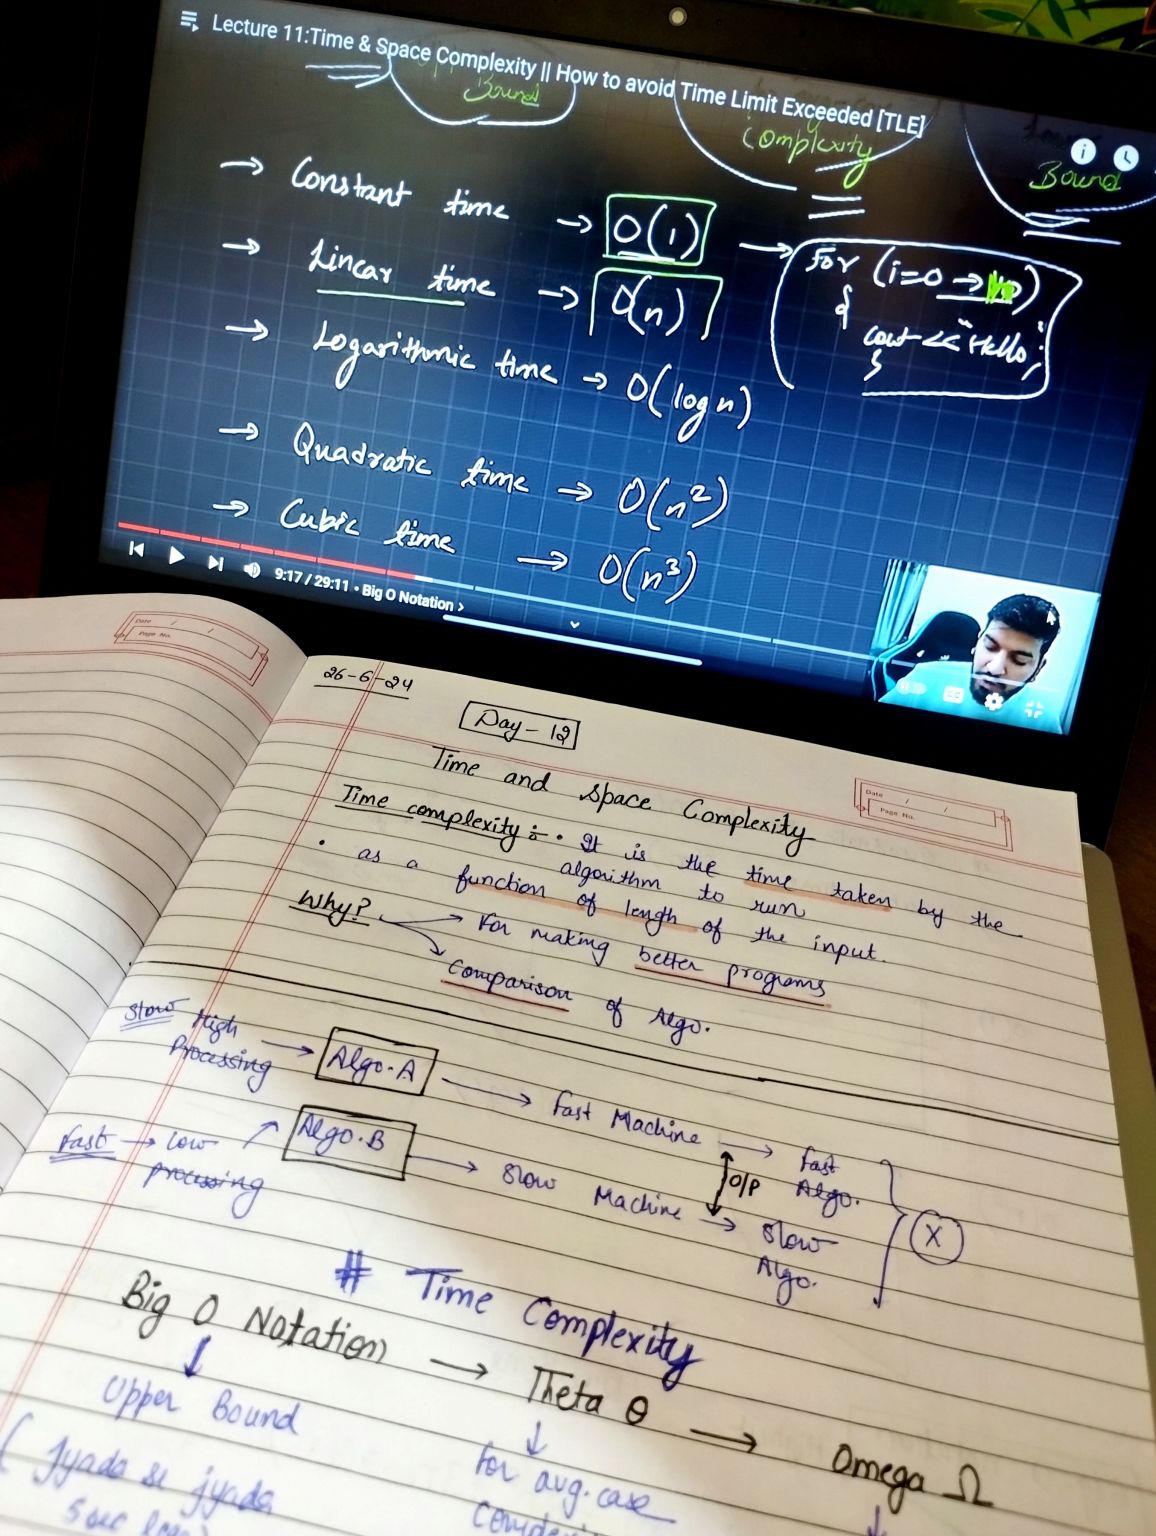 Lecture 11:Time & Space Complexity || How to avoid Time Limit Exceeded [TLE]
Bound
Complexity
Bound
→ Constant time → O(1) →
→ Linear time → O(n)
→ Logarithmic time → O(log n)
→ Quadratic time → O(n²)
→ Cubic time → O(n³)
for (i=0 → )
{
cout << "Hello";
}
9:17 / 29:11 • Big O Notation >
Date / /
Page No.
26-6-24
Day - 12
Date / /
Page No.
Time and Space Complexity
Time complexity ÷ • It is the time taken by the
algorithm to run
• as a function of length of the input.
Why? → For making better programs
→ Comparison of Algo.
Slow High Processing → Algo. A → Fast Machine → Fast Algo.
O/P
Fast → Low processing → Algo. B → Slow Machine → Slow Algo.
X
# Time Complexity
Big O Notation → Theta θ → Omega Ω
↓
Upper Bound
↓
for avg. case
↓
( Jyada se jyada
5 sec